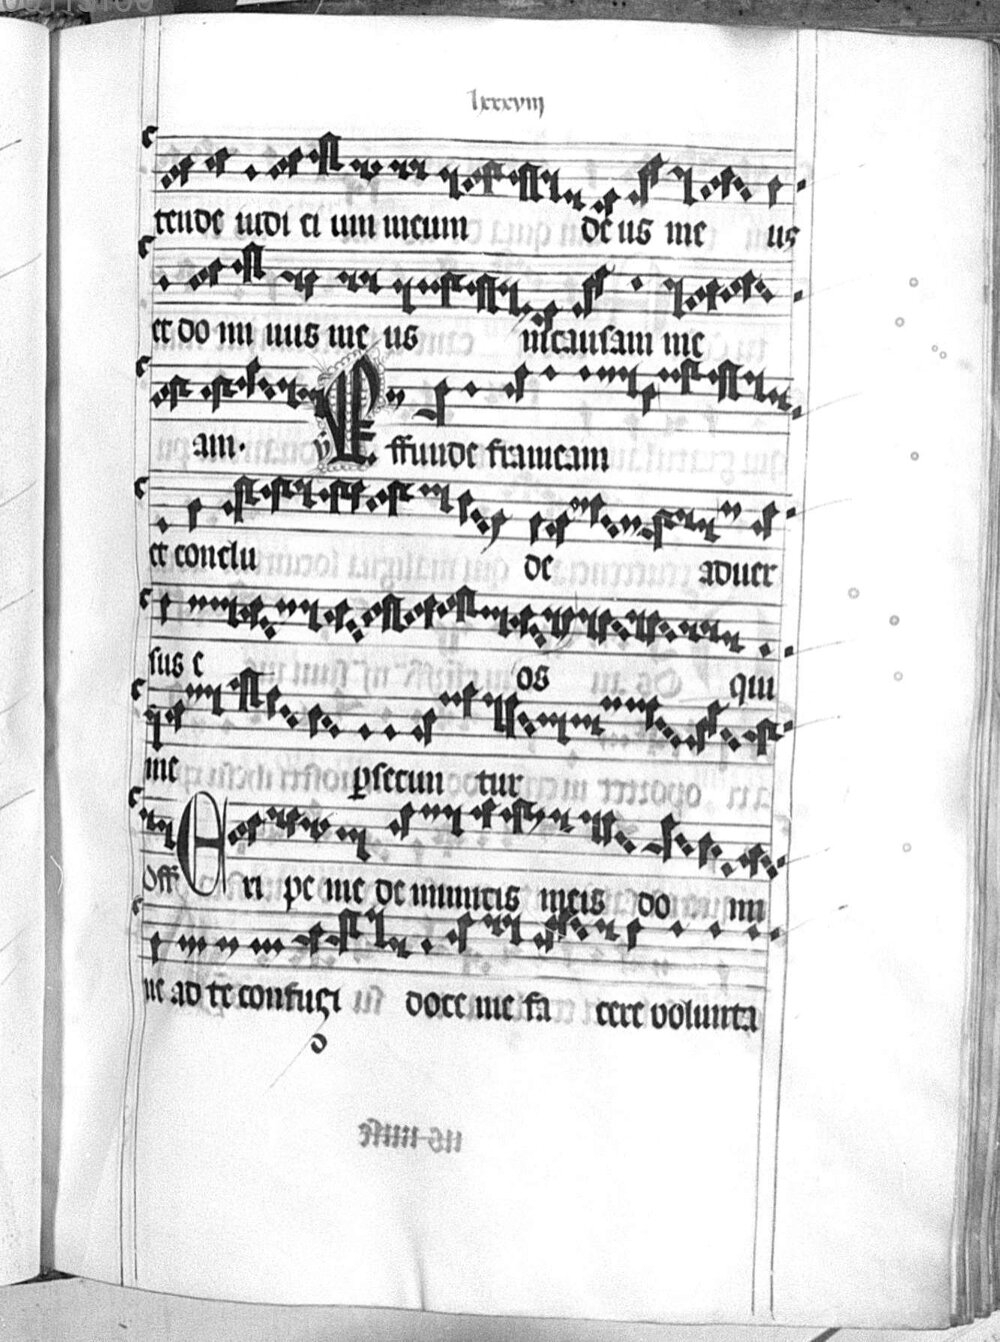 lxxxviij
tende iudi ci um meum de us me us
et do mi nus me us in causam me
am. v Effunde frameam
et conclu de aduer
sus e os qui
me psecun tur
Off Eri pe me de inimicis meis do mi
ne ad te confugi doce me fa cere volunta